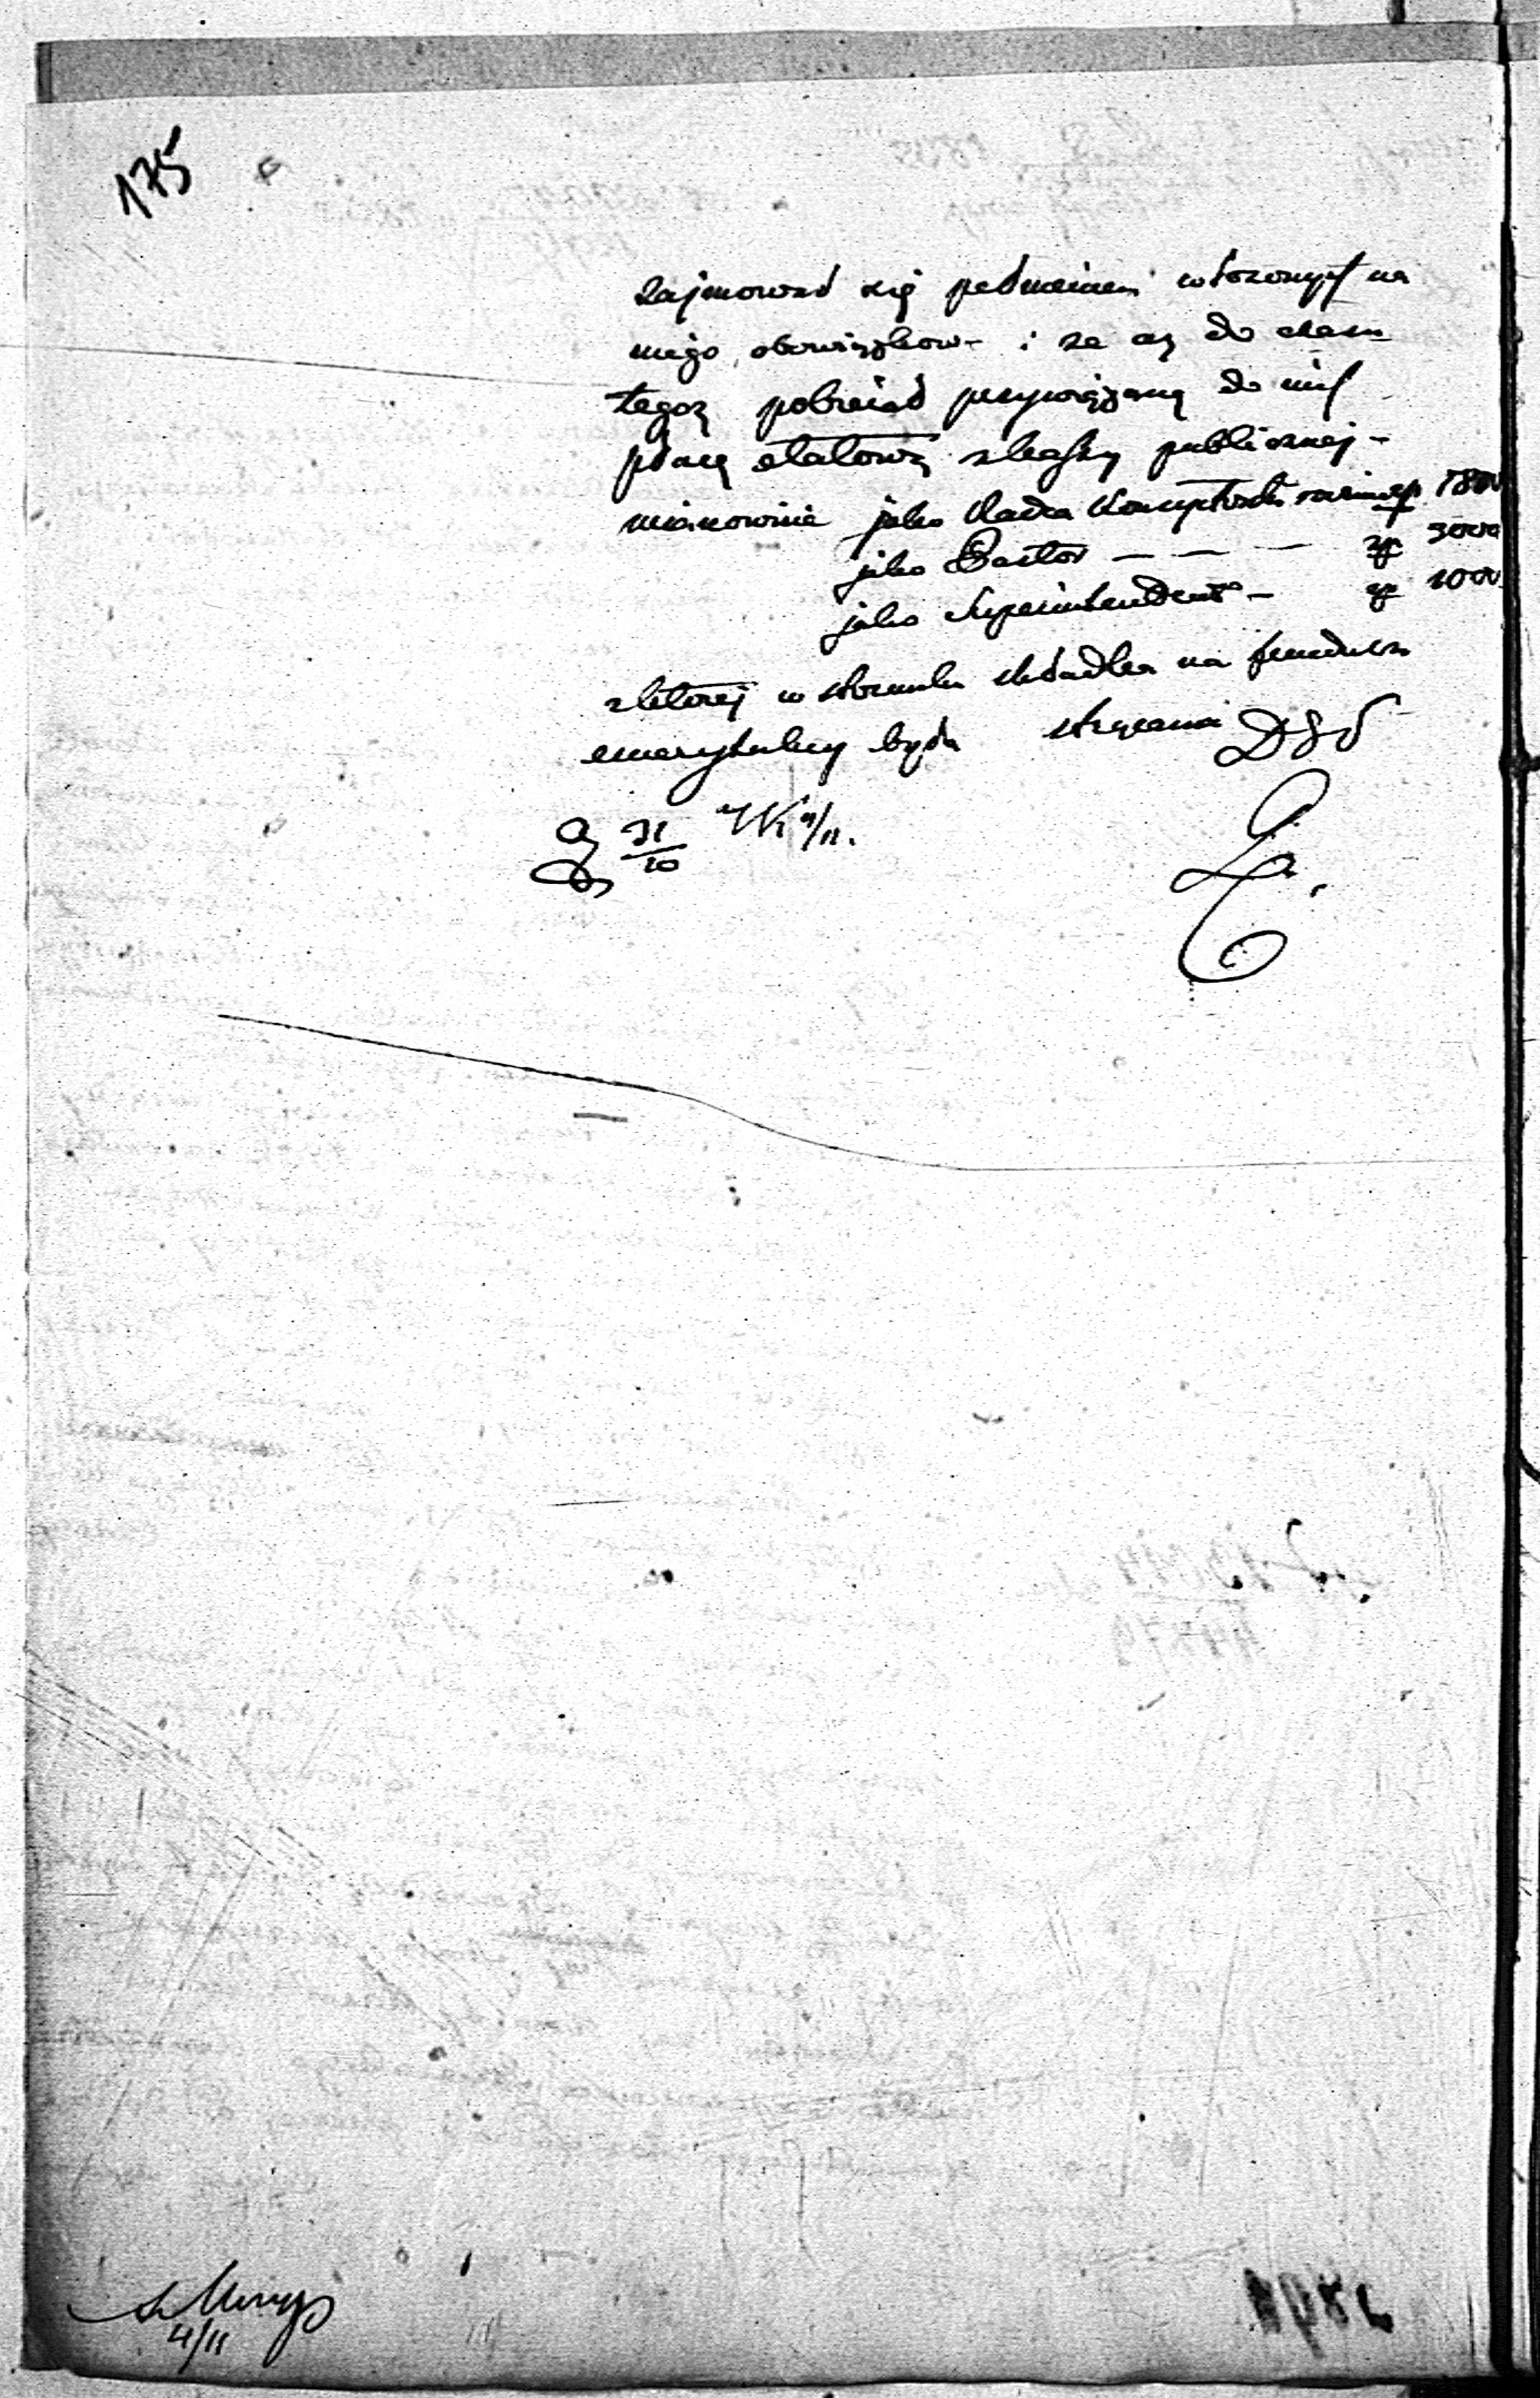 175
zajmował się pełnieniem włożonych na
niego obowiązków i że aż do czasu
tegoż pobierał przywiązaną do nich
płacę etatową z kassy publicznej
mianowicie jako Radca Konsystorski zł 1800
jako Pastor — — — zł 3000
jako Superintendent — zł 1000
z której w stosunku składka na fundusz
emerytalny była strącana
31/10 4/11.
4/11